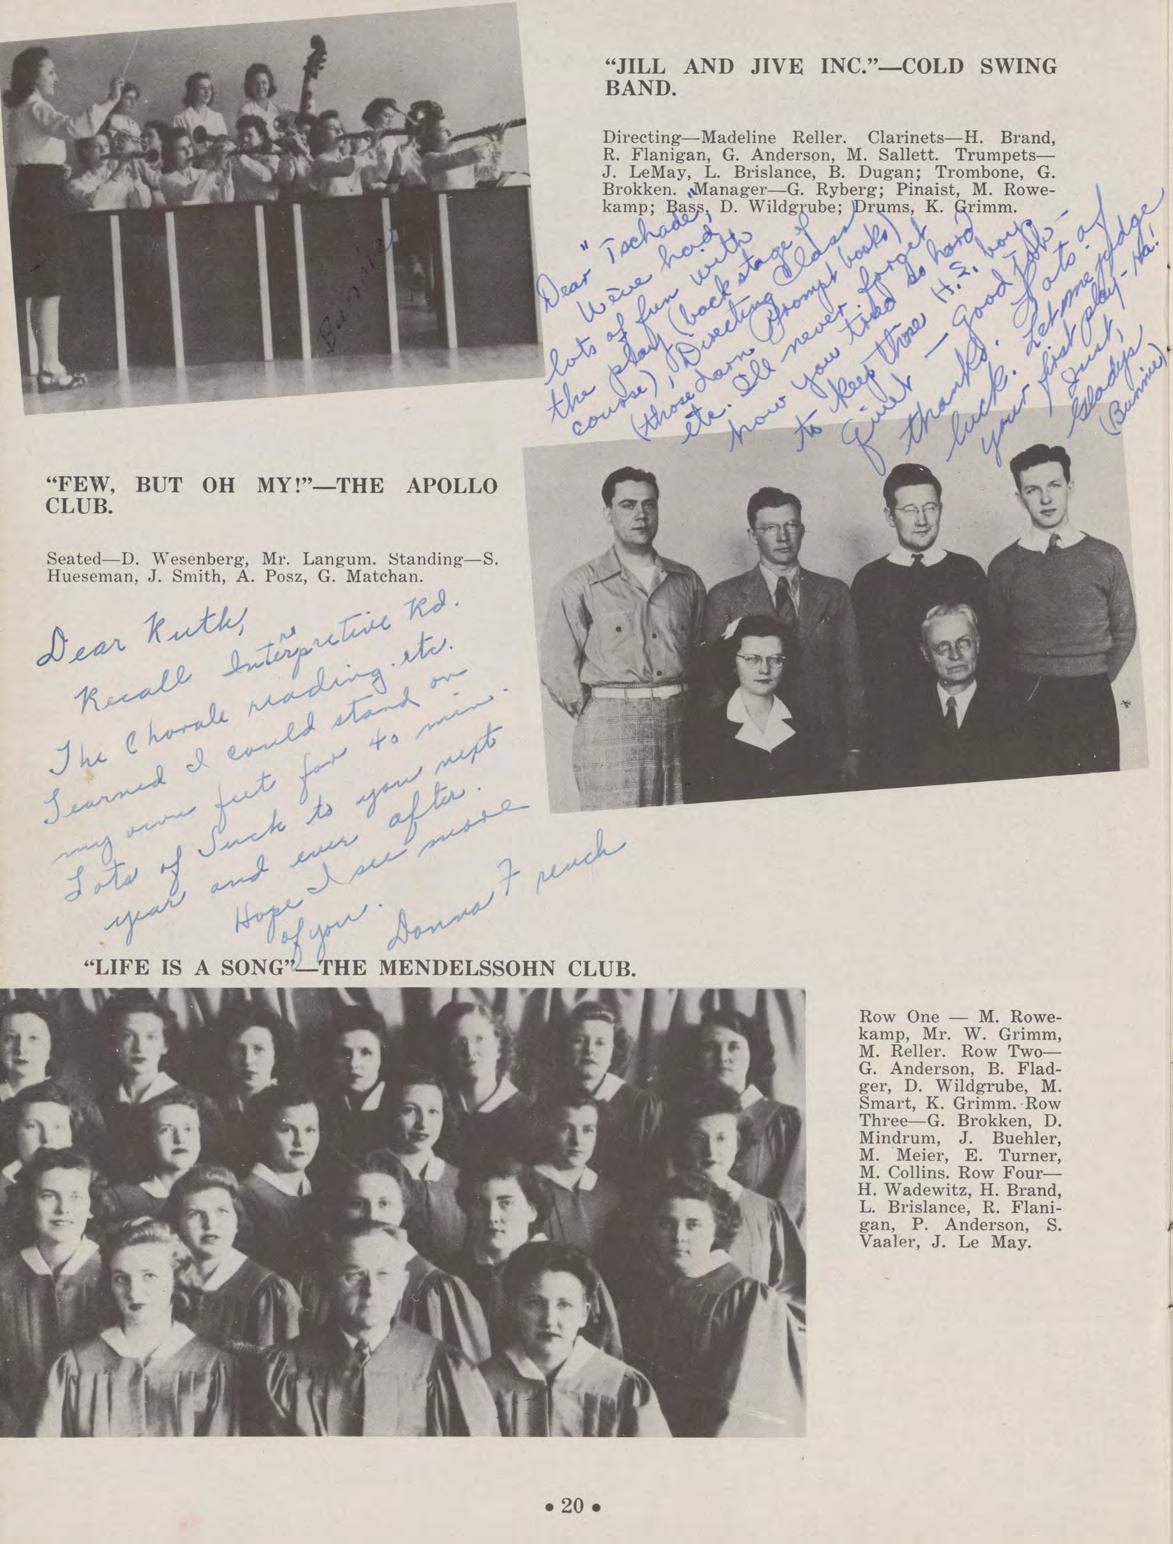 “JILL AND JIVE INC.”—COLD SWING
BAND.
Directing—Madeline Reller. Clarinets—H. Brand,
R. Flanigan, G. Anderson, M. Sallett. Trumpets—
J. LeMay, L. Brislance, B. Dugan; Trombone, G.
Brokken. Manager—G. Ryberg; Pinaist, M. Rowe-
kamp; Bass, D. Wildgrube; Drums, K. Grimm.
Dear "Tschade",
We've had
lots of fun with
the play (back stage of
course), Directing Class
(those darn Prompt books)
etc. I'll never forget
how you tried so hard
to keep those H.S. boys
quiet — Good Job —
thanks. Lots of
luck. Let me judge
your first play - Ha!
Just,
Gladys
(Bunnie)
Bunnie
“FEW, BUT OH MY!”—THE APOLLO
CLUB.
Seated—D. Wesenberg, Mr. Langum. Standing—S.
Hueseman, J. Smith, A. Posz, G. Matchan.
Dear Ruth,
Recall Interpretive Rd.
The Chorale reading. etc.
Learned I could stand on
my own feet for 40 min.
Lots of Luck to you next
year and ever after.
Hope I see more
of you.
Donna French
“LIFE IS A SONG”—THE MENDELSSOHN CLUB.
Row One — M. Rowe-
kamp, Mr. W. Grimm,
M. Reller. Row Two—
G. Anderson, B. Flad-
ger, D. Wildgrube, M.
Smart, K. Grimm. Row
Three—G. Brokken, D.
Mindrum, J. Buehler,
M. Meier, E. Turner,
M. Collins. Row Four—
H. Wadewitz, H. Brand,
L. Brislance, R. Flani-
gan, P. Anderson, S.
Vaaler, J. Le May.
• 20 •